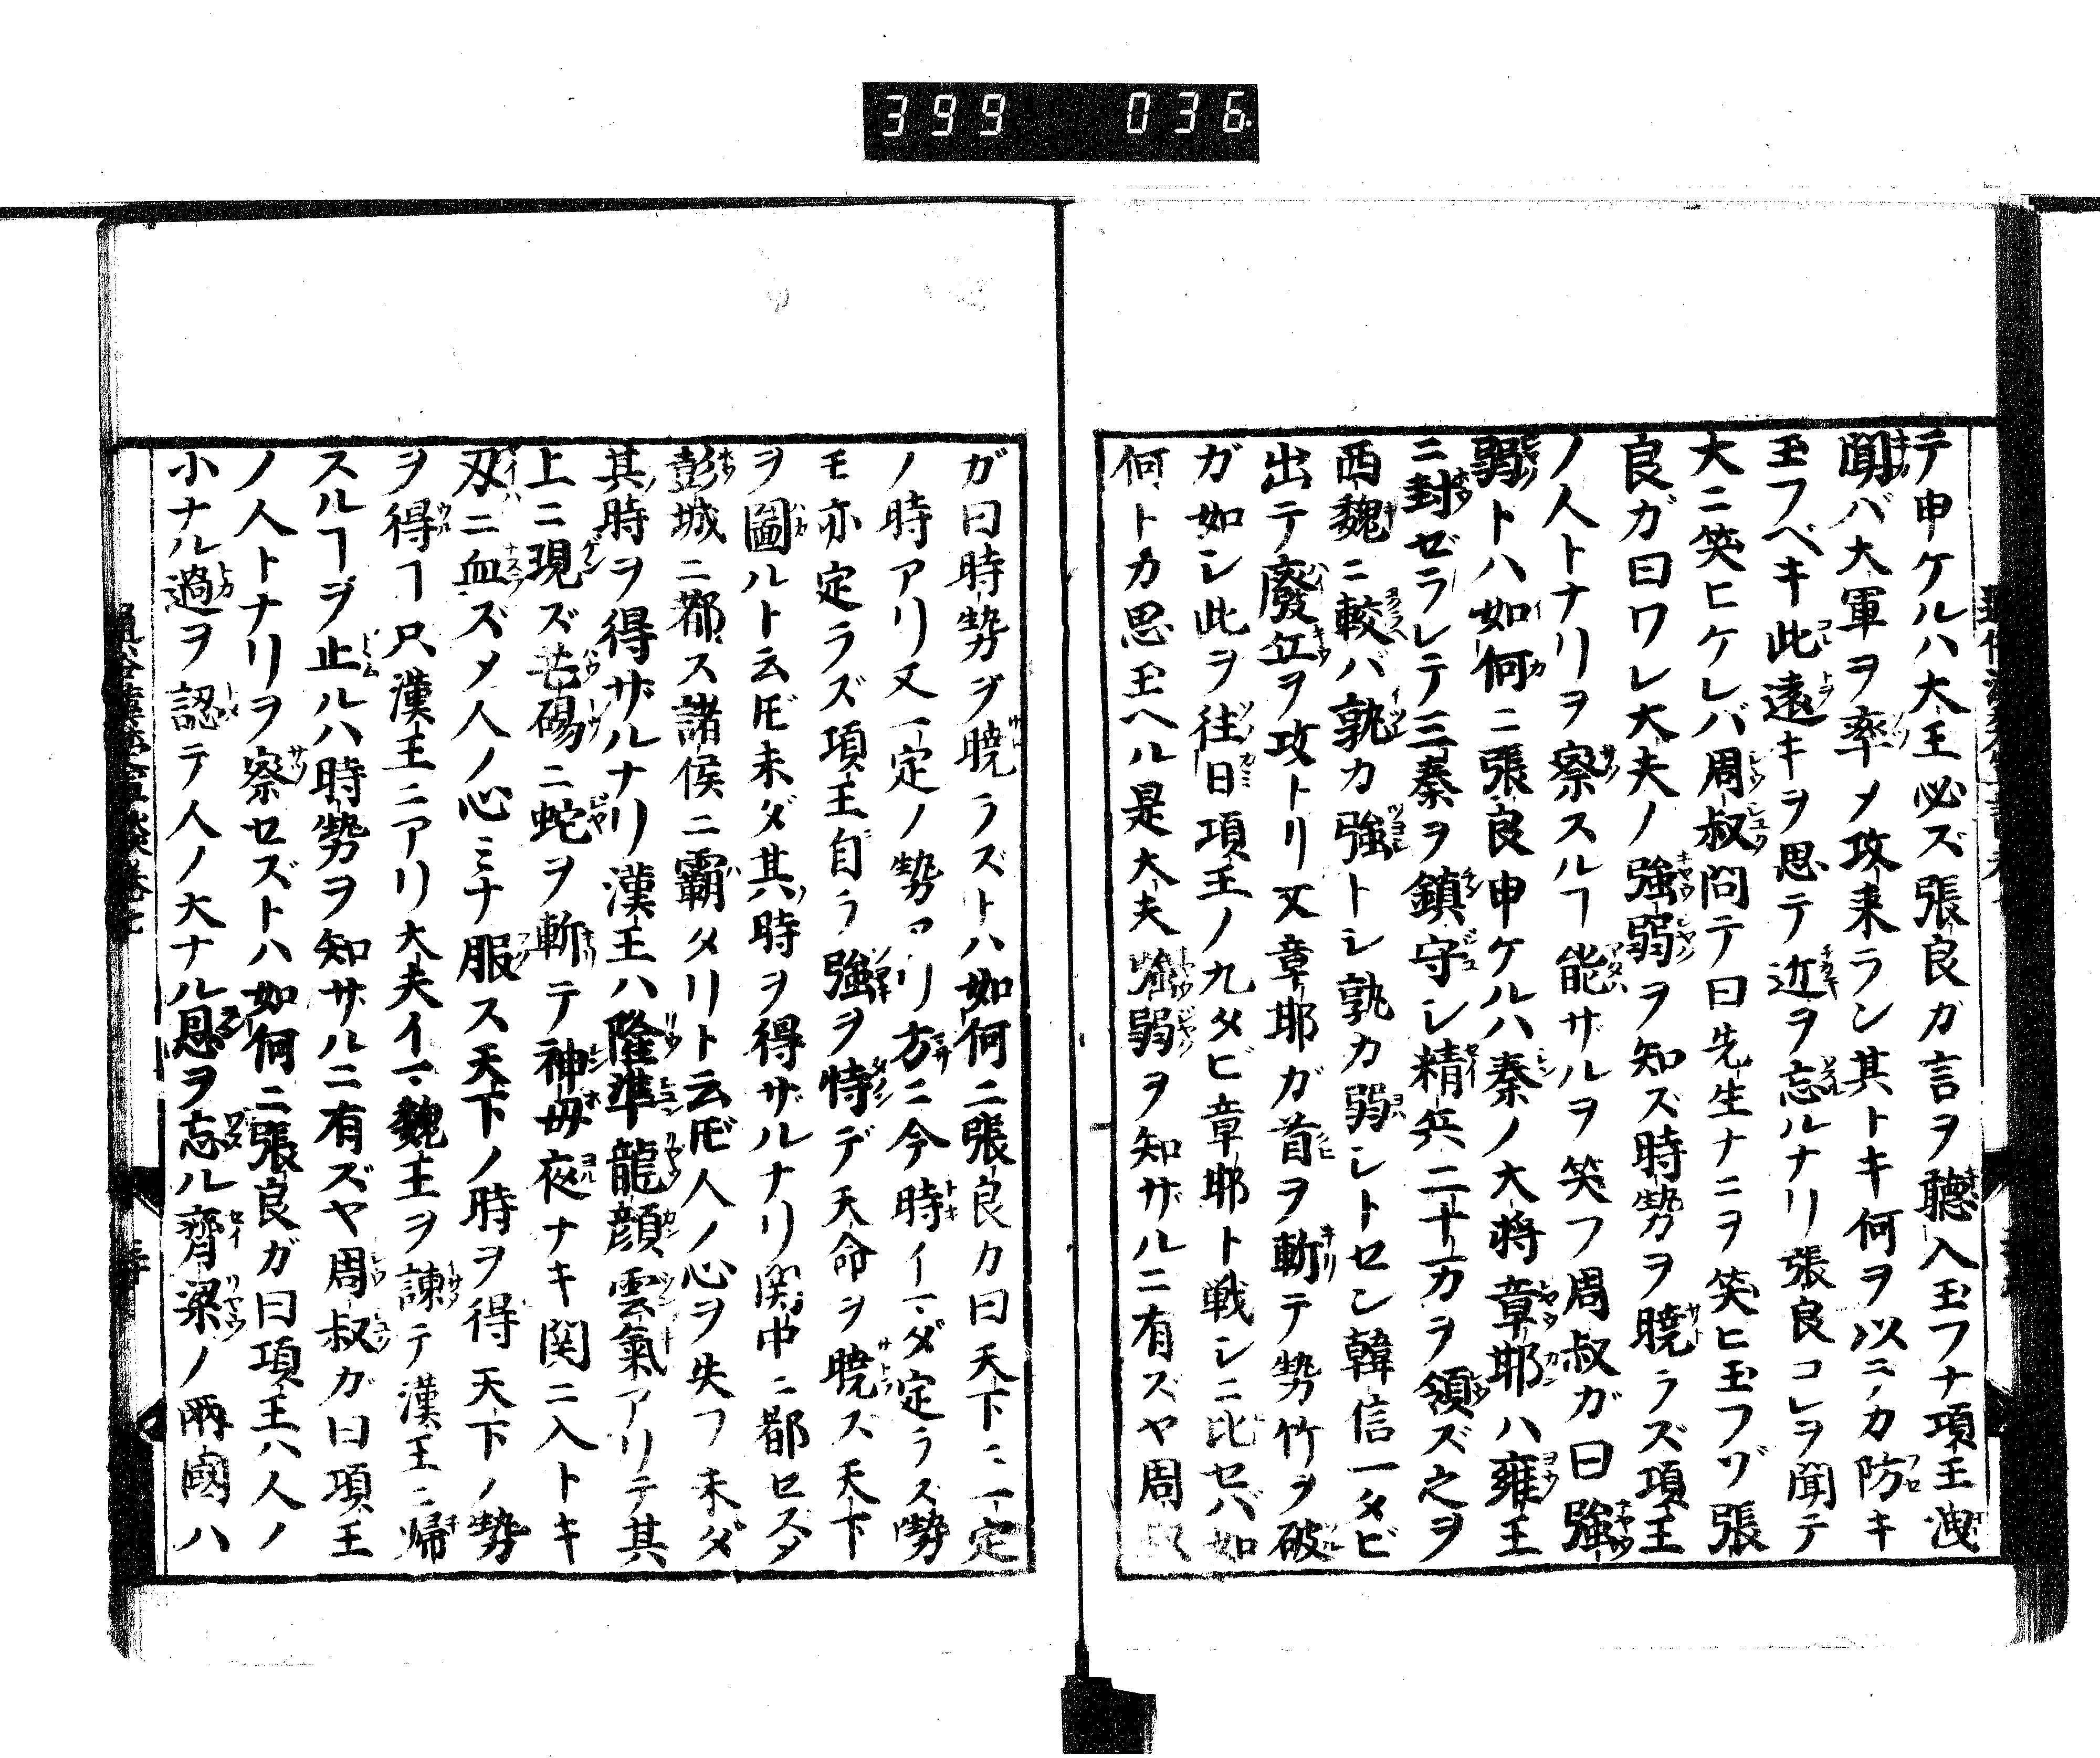 399 036
テ申ケルハ大王必ズ張良ガ言ヲ聽入玉フナ項王洩
聞バ大軍ヲ率メ攻来ラン其トキ何ヲ以ニカ防キ
玉フベキ此遠キヲ思テ近ヲ忘ルナリ張良コレヲ聞テ
大ニ笑ヒケレバ周叔問テ曰先生ナニヲ笑ヒ玉フゾ張
良ガ曰ワレ大夫ノ強弱ヲ知ズ時勢ヲ暁ラズ項王
ノ人トナリヲ察スルヿ能ザルヲ笑フ周叔ガ曰強
弱トハ如何ニ張良申ケルハ秦ノ大将章邯ハ雍王
ニ封ゼラレテ三秦ヲ鎮守シ精兵二十万ヲ領ズ之ヲ
西魏ニ較バ孰カ強トシ孰カ弱シトセン韓信一タビ
出テ廢丘ヲ攻トリ又章邯ガ首ヲ斬テ勢竹ヲ破
ガ如シ此ヲ往日項王ノ九タビ章邯ト戦シニ比セバ如
何トカ思玉ヘル是大夫強弱ヲ知ザルニ有ズヤ周叔
ガ曰時勢ヲ暁ラズトハ如何ニ張良カ曰天下ニ一定
ノ時アリ又一定ノ勢アリ方ニ今時イマダ定ラス勢
モ亦定ラズ項王自ラ強ヲ恃デ天命ヲ暁ズ天下
ヲ圖ルト云𪜈未ダ其時ヲ得ザルナリ関中ニ都セスメ
彭城ニ都ス諸侯ニ覇タリト云𪜈人ノ心ヲ失フ未ダ
其時ヲ得ザルナリ漢王ハ隆準龍顔雲氣アリテ其
上ニ現ズ芒碭ニ蛇ヲ斬テ神毋夜ナキ関ニ入トキ
刄ニ血ズメ人ノ心ミナ服ス天下ノ時ヲ得天下ノ勢
ヲ得ヿ只漢王ニアリ大夫イマ魏王ヲ諫テ漢王ニ歸
スルヿヲ止ルハ時勢ヲ知ザルニ有ズヤ周叔ガ曰項王
ノ人トナリヲ察セズトハ如何ニ張良ガ曰項王ハ人ノ
小ナル過ヲ認テ人ノ大ナル恩ヲ忘ル齊梁ノ兩國ハ